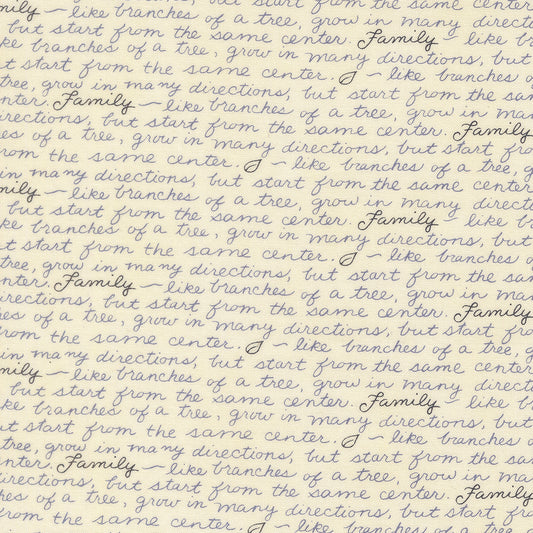 directions, but start from the same center
mily ~ like branches of a tree, grow in many directi
but start from the same center. Family ~ like b
ke branches of a tree, grow in many directions, but
t start from the same center. ~ like branches o
tree, grow in many directions, but start from the sam
nter. Family ~ like branches of a tree, grow in ma
irections, but start from the same center. Family
es of a tree, grow in many directions, but start fro
rom the same center. ~ like branches of a tree, g
in many directions, but start from the same center
mily ~ like branches of a tree, grow in many directi
but start from the same center. Family ~ like b
ke branches of a tree, grow in many directions, but
t start from the same center. ~ like branches o
tree, grow in many directions, but start from the sam
nter. Family ~ like branches of a tree, grow in ma
irections, but start from the same center. Family
es of a tree, grow in many directions, but start fro
rom the same center. ~ like branches of a tree, g
in many directions, but start from the same center
mily ~ like branches of a tree, grow in many directi
but start from the same center. Family ~ like b
ke branches of a tree, grow in many directions, but
t start from the same center. ~ like branches o
tree, grow in many directions, but start from the sa
nter. Family ~ like branches of a tree, grow in ma
irections, but start from the same center. Family
hes of a tree, grow in many directions, but start fro
from the same center. ~ like branches of a tree, g